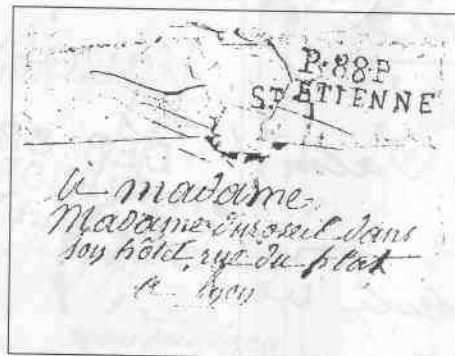 P.88.P
ST ETIENNE
à madame
Madame duroseil dans
son hôtel, rue du plat
a lyon